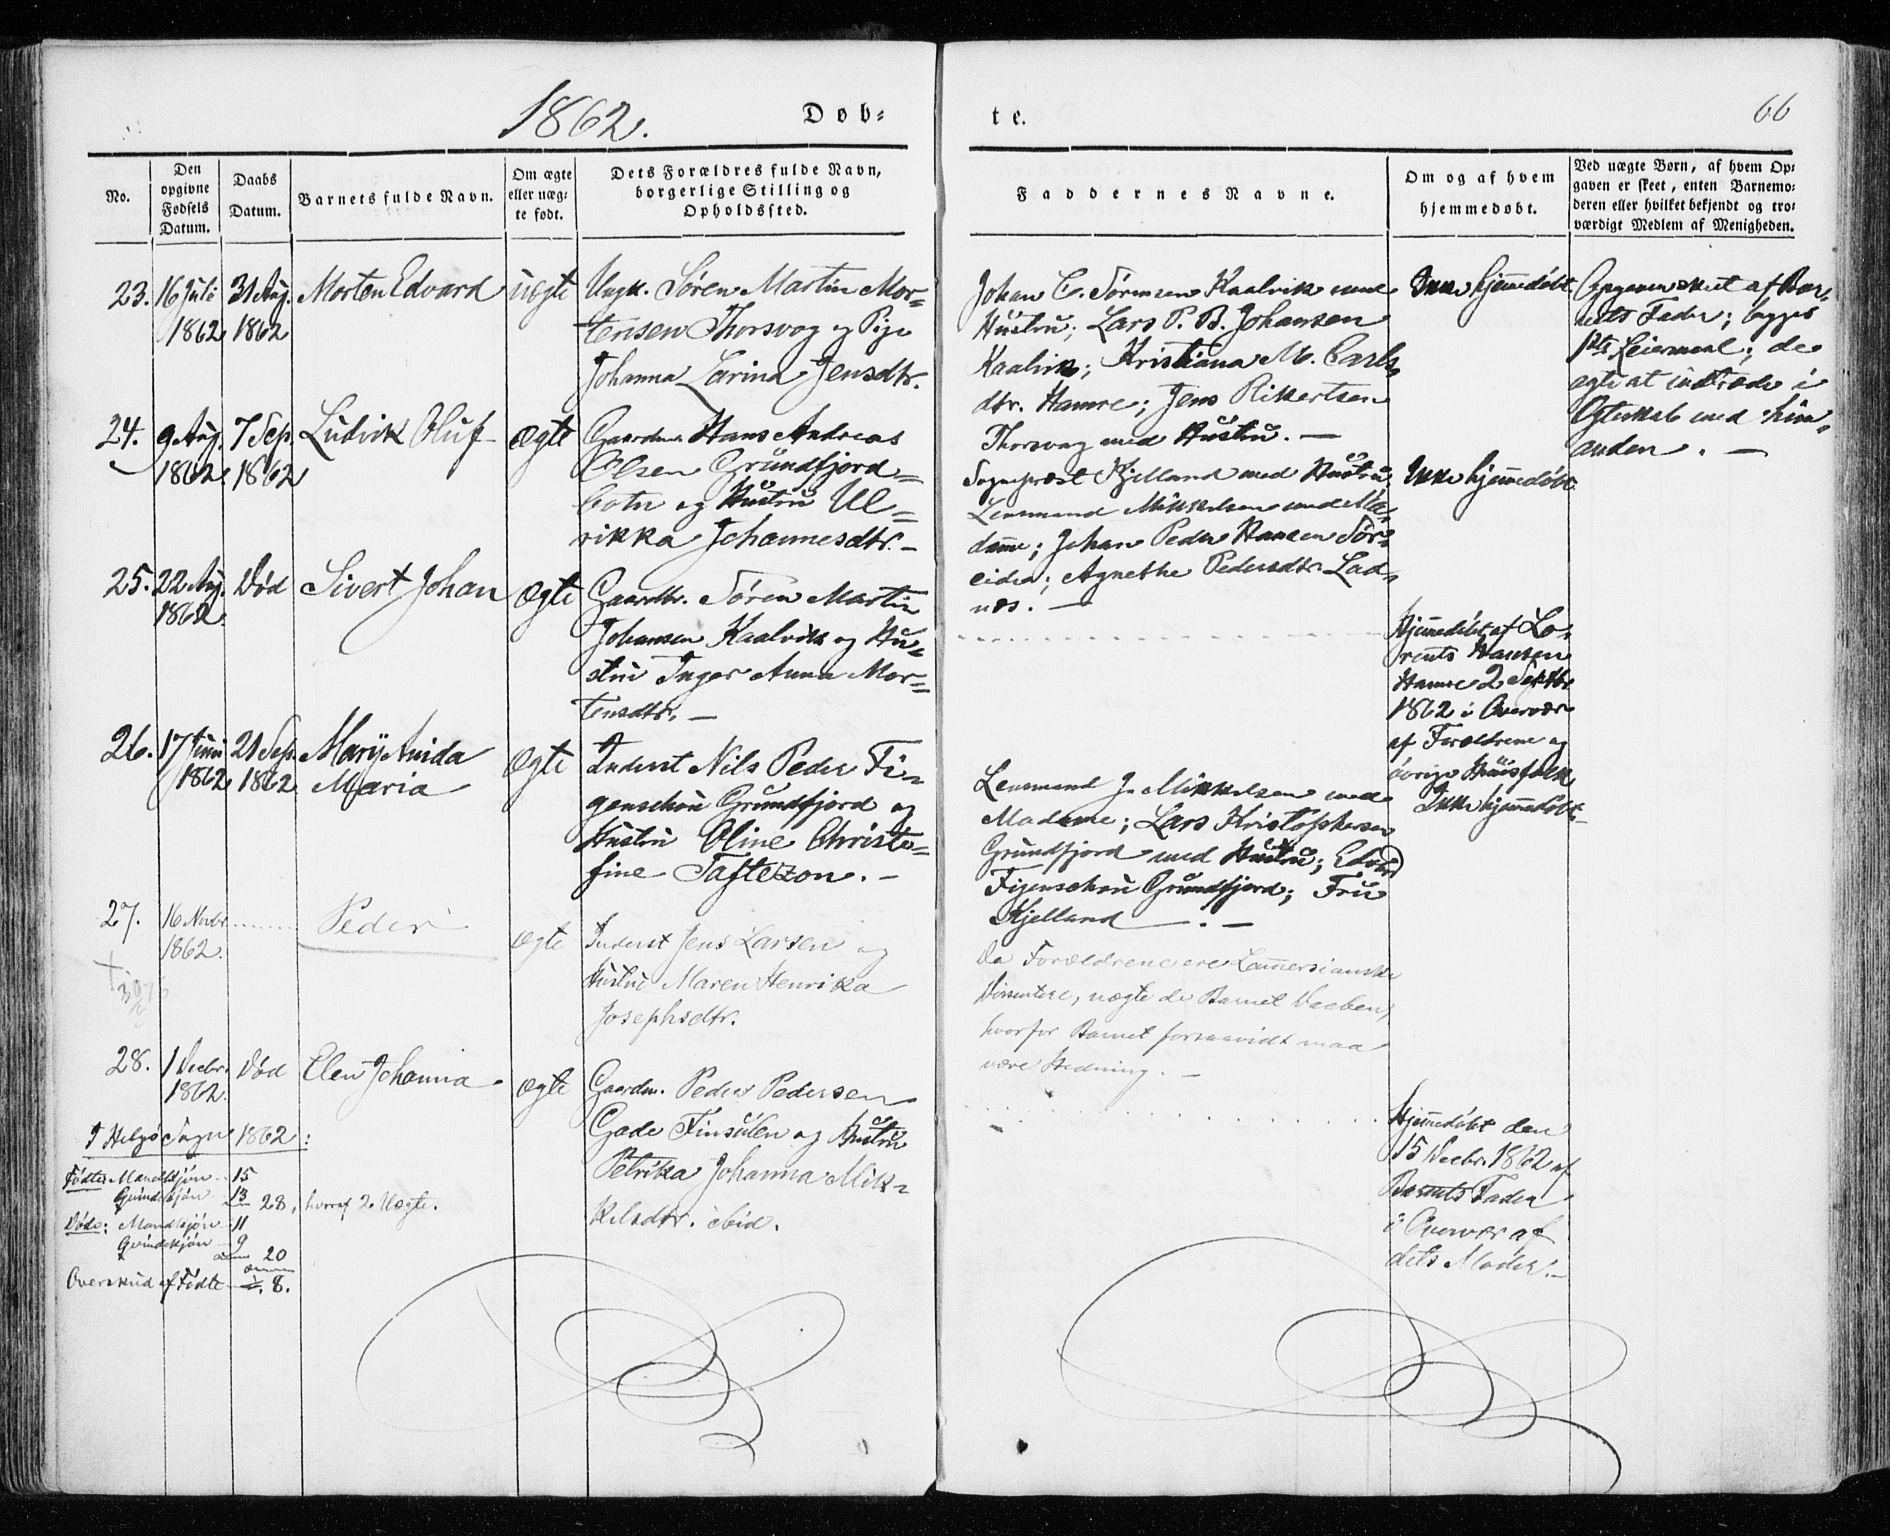 1862. Døb=
te.
66
No.
Den opgivne Fødsels Datum.
Daabs Datum.
Barnets fulde Navn.
Om ægte eller uæg= te født.
Dets Forældres fulde Navn, borgerlige Stilling og Opholdssted.
Faddernes Navne.
Om og af hvem hjemmedøbt.
Ved uægte Børn, af hvem Op=
gaven er skeet, enten Barnemo=
deren eller hvilket bekjendt og tro=
værdigt Medlem af Menigheden.
23. 16 Juli 1862
31 Aug. 1862
Morten Edvard
uægte
Ungk. Søren Martin Mor=
tensen Thorsvog og Pige
Johanna Larina Jensdtr.
Johan C. Sørensen Kaalvik med
Hustru; Lars P. B. Johansen
Kaalvik; Kristiana M. Carls
dtr. Hamre; Jens Rikertsen
Thorsvag med Hustru. —
Ikke hjemmedøbt
Opgaven skeet af Bar=
nets Fader; begges
1ste Leiermaal; de
agte at indtræde i
Egteskab med hin=
anden. —
24. 9 Aug. 1862
7 Sep. 1862
Ludvik Oluf
ægte
Gaardm. Hans Andreas
Olsen Grundfjord=
botn og Hustru Ul=
rikka Johannesdtr. —
Sognepræst Kjelland med Hustru;
Lensmand Mikkelsen med Ma=
dame; Johan Peder Hansen Sør=
eidet; Agnethe Pedersdtr. Lad=
næs. —
Ikke hjemmedøbt
25. 22 Aug. 1862
Død
Sivert Johan
ægte
Gaardbr. Søren Martin
Johansen Kaalvik og Hu=
stru Inger Anna Mor=
tensdtr. —
Hjemmedøbt af Lo=
rents Hansen
Hamre 2 Septbr
1862 i Overvær
af Forældrene og
øvrige Huusfolk
26. 17 Juni 1862
21 Sep. 1862
Mary Anida
Maria
ægte
Inderst Nils Peder Fi=
genschou Grundfjord og
Hustru Oline Christo=
fine Taftezon. —
Lensmand J. Mikkelsen med
Madame; Lars Kristophersen
Grundfjord med Hustru; Edvard
Figenschou Grundfjord; Fru
Kjelland —. —
Ikke hjemmedøbt
27. 16 Novbr. 1862.
Peder
ægte
Inderst Jens Larsen og
Hustru Maren Henrika
Josephsdtr.
Da Forældrene ere Lammersianske
Dissentere, nægte de Barnet Daaben,
hvorfor Barnet forsaavidt maa
være Hedning. —
28. 1 Decbr. 1862.
Død
Elen Johanna
ægte
Gaardm. Peder Pedersen
Gade Finsulen og Hustru
Petrika Johanna Mik=
kelsdtr. ibid.
Hjemmedøbt den
15 Decbr. 1862 af
Barnets Fader
i Overvær af
dets Moder. —
I Helgø Sogn 1862:
Fødte: Mandkjøn — 15
Qvindekjøn — 13
28, hvoraf 2 Uægte.
Døde: Mandkjøn — 11
Qvindekjøn — 9
20
Overskud af Fødte — 8.